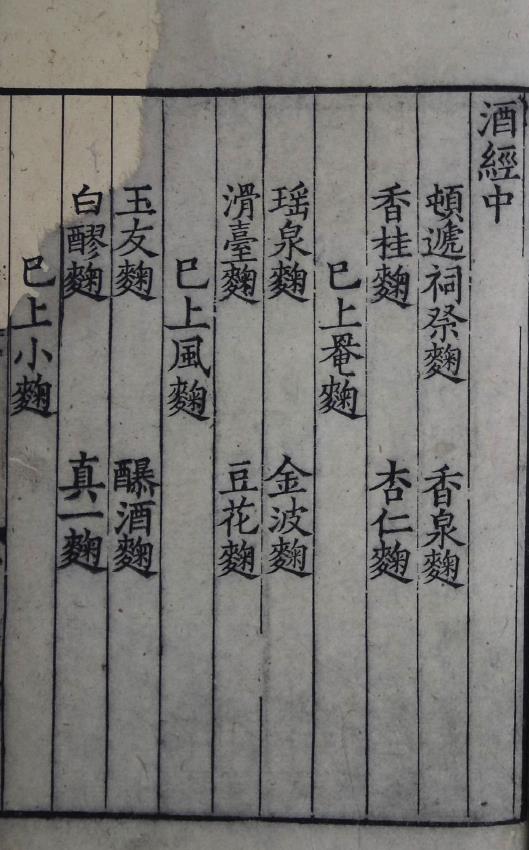 酒經中
頓遞祠祭麴 香泉麴
香桂麴 杏仁麴
巳上罨麴
瑶泉麴 金波麴
滑臺麴 豆花麴
巳上風麴
玉友麴 醸酒麴
白醪麴 真一麴
巳上小麴